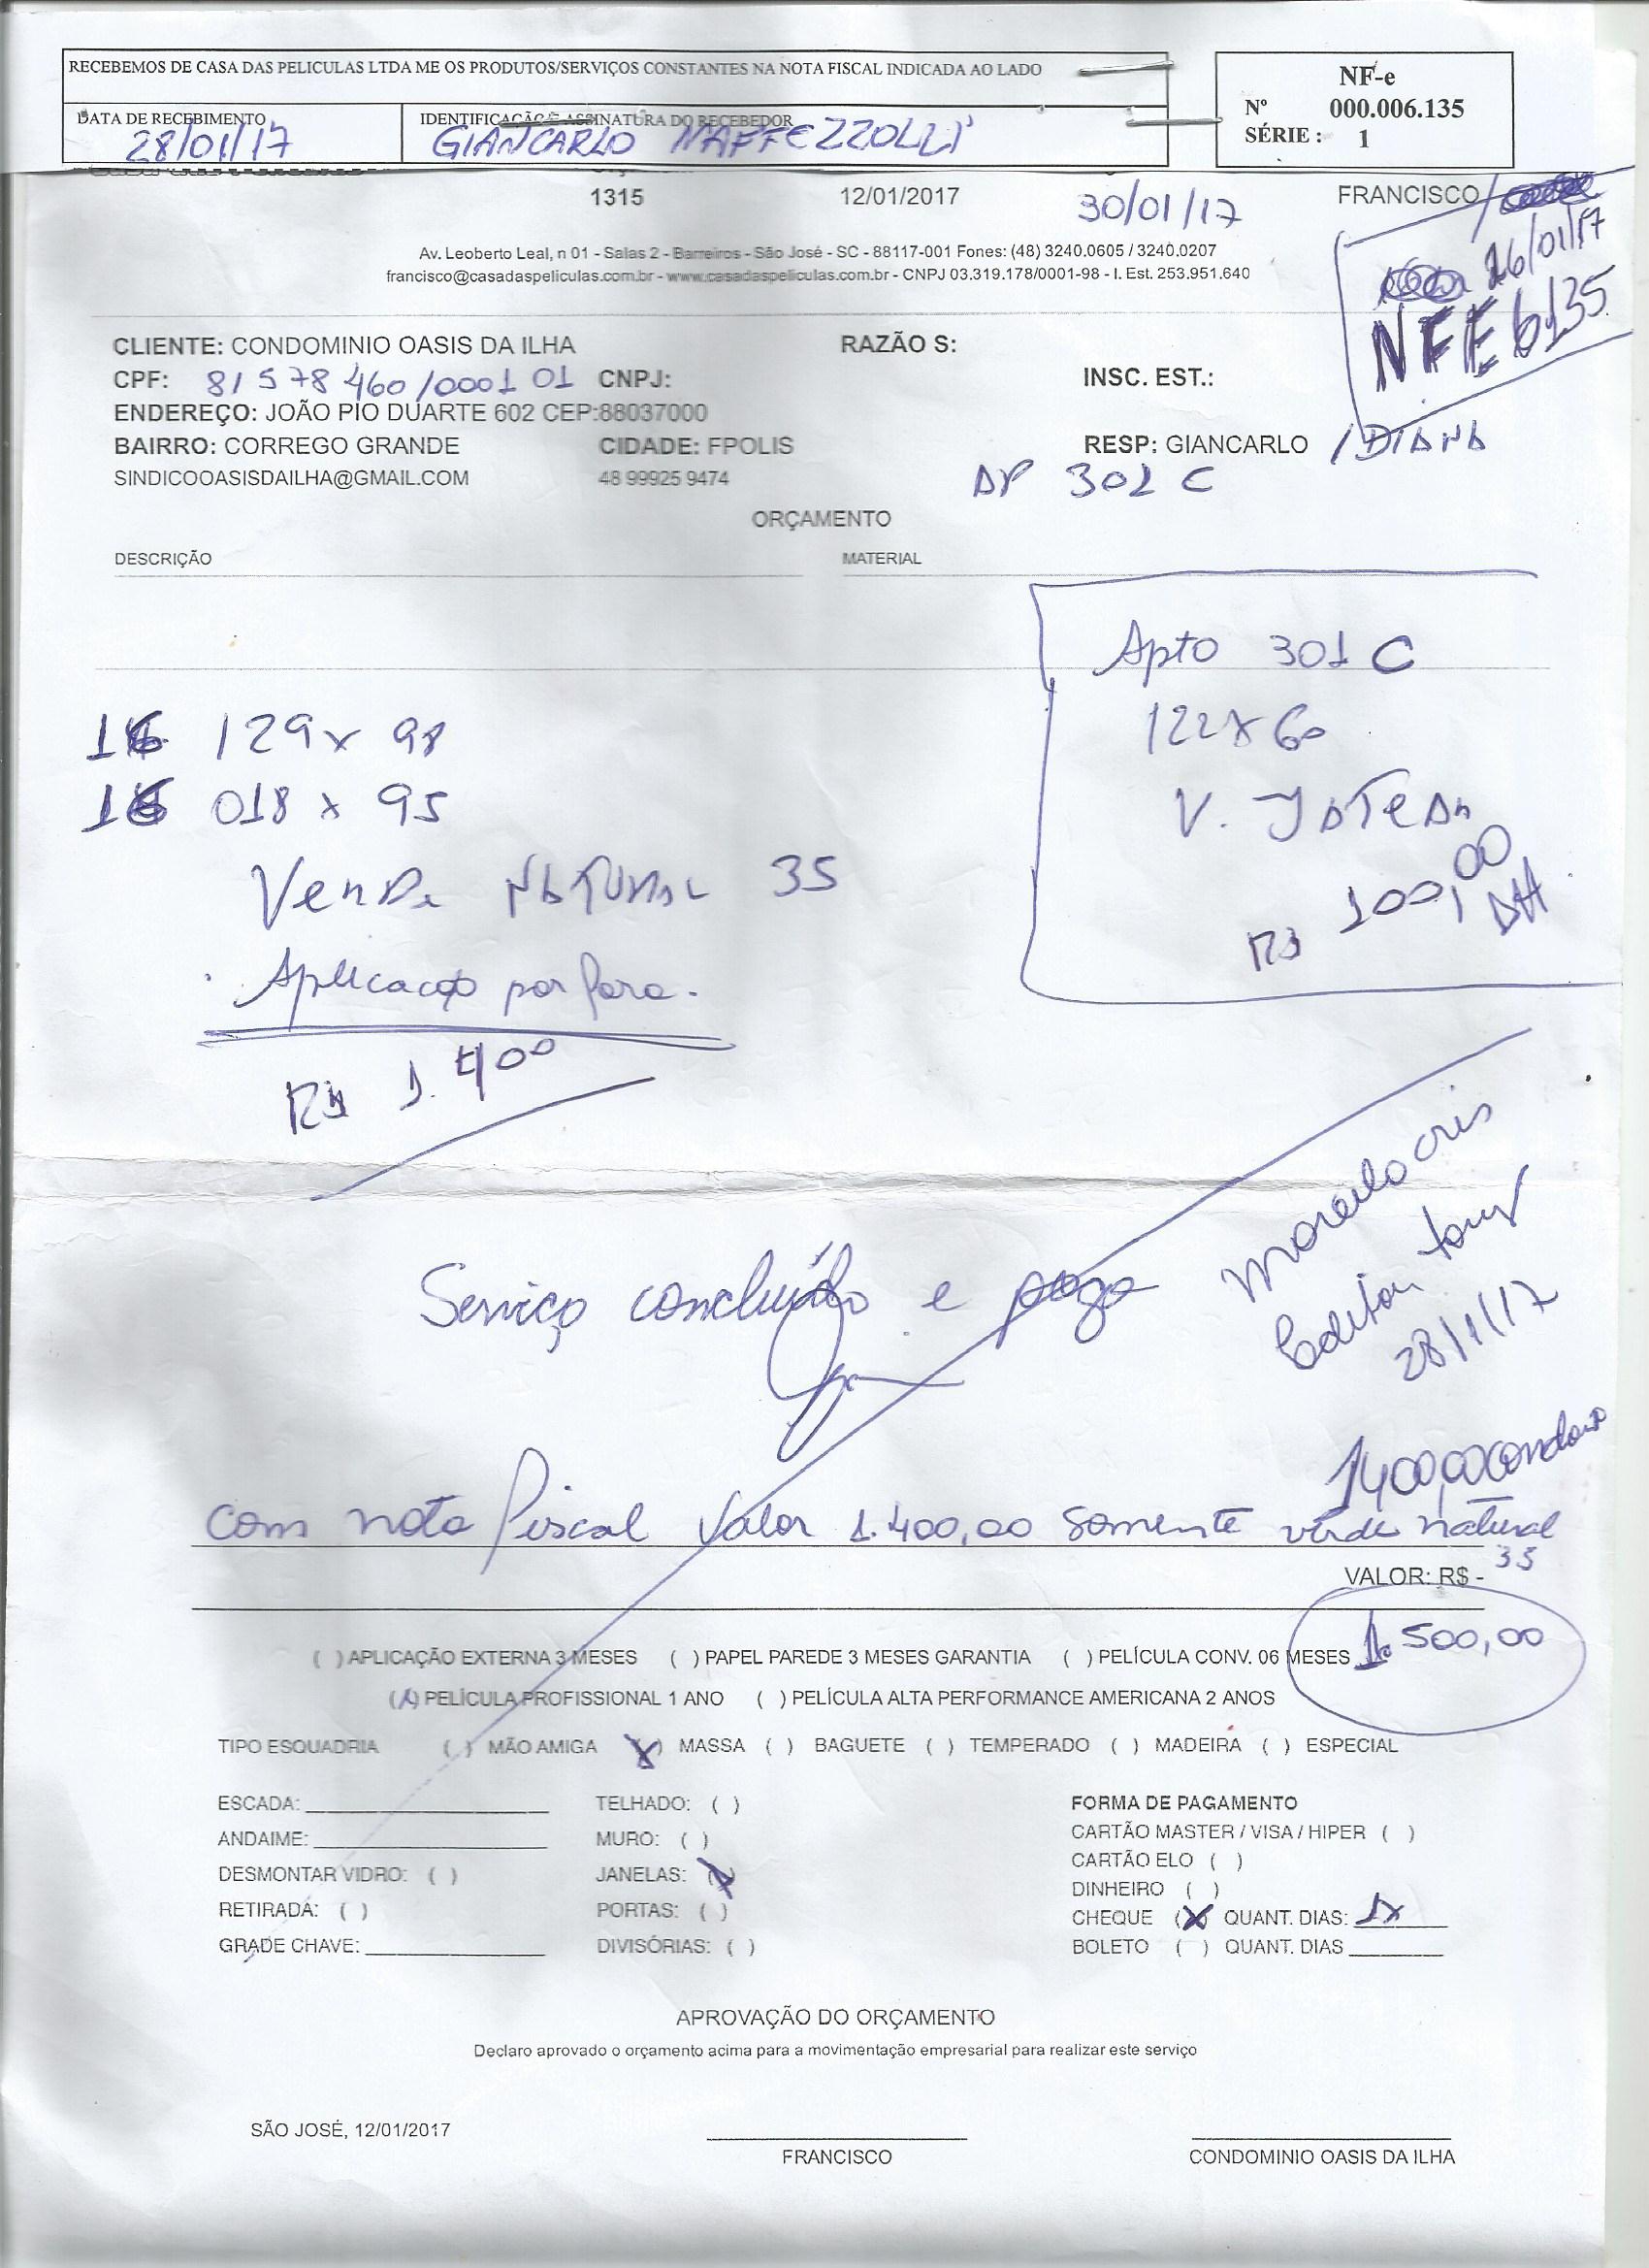 RECEBEMOS DE CASA DAS PELICULAS LTDA ME OS PRODUTOS/SERVIÇOS CONSTANTES NA NOTA FISCAL INDICADA AO LADO
NF-e
Nº 000.006.135
SÉRIE : 1
DATA DE RECEBIMENTO
28/01/17
IDENTIFICAÇÃO E ASSINATURA DO RECEBEDOR
GIANCARLO MAFFEZZOLLI
1315 12/01/2017 30/01/17 FRANCISCO /
26/01/17
NFE 6135
Av. Leoberto Leal, n 01 - Salas 2 - Barreiros - São José - SC - 88117-001 Fones: (48) 3240.0605 / 3240.0207
francisco@casadaspeliculas.com.br - www.casadaspeliculas.com.br - CNPJ 03.319.178/0001-98 - I. Est. 253.951.640
CLIENTE: CONDOMINIO OASIS DA ILHA RAZÃO S:
CPF: 81 578 460/0001 01 CNPJ: INSC. EST.:
ENDEREÇO: JOÃO PIO DUARTE 602 CEP:88037000
BAIRRO: CORREGO GRANDE CIDADE: FPOLIS RESP: GIANCARLO / DIANA
SINDICOOASISDAILHA@GMAIL.COM 48 99925 9474 AP 301 C
ORÇAMENTO
DESCRIÇÃO MATERIAL
Apto 301 C
122x60
R$ 100,00
16 129 x 98
16 018 x 95
Verde NATURAL 35
Aplicacao por fora.
R$ 1.400
Serviço concluído e pago
28/1/17
1400,00
com nota fiscal valor 1.400,00 somente verde natural
35
VALOR: R$ -
1.500,00
( ) APLICAÇÃO EXTERNA 3 MESES ( ) PAPEL PAREDE 3 MESES GARANTIA ( ) PELÍCULA CONV. 06 MESES
(X) PELÍCULA PROFISSIONAL 1 ANO ( ) PELÍCULA ALTA PERFORMANCE AMERICANA 2 ANOS
TIPO ESQUADRIA ( ) MÃO AMIGA (X) MASSA ( ) BAGUETE ( ) TEMPERADO ( ) MADEIRA ( ) ESPECIAL
ESCADA: TELHADO: ( ) FORMA DE PAGAMENTO
ANDAIME: MURO: ( ) CARTÃO MASTER / VISA / HIPER ( )
DESMONTAR VIDRO: ( ) JANELAS: (X) CARTÃO ELO ( )
DINHEIRO ( )
RETIRADA: ( ) PORTAS: ( ) CHEQUE (X) QUANT. DIAS: 1x
GRADE CHAVE: DIVISÓRIAS: ( ) BOLETO ( ) QUANT. DIAS
APROVAÇÃO DO ORÇAMENTO
Declaro aprovado o orçamento acima para a movimentação empresarial para realizar este serviço
SÃO JOSÉ, 12/01/2017
FRANCISCO CONDOMINIO OASIS DA ILHA